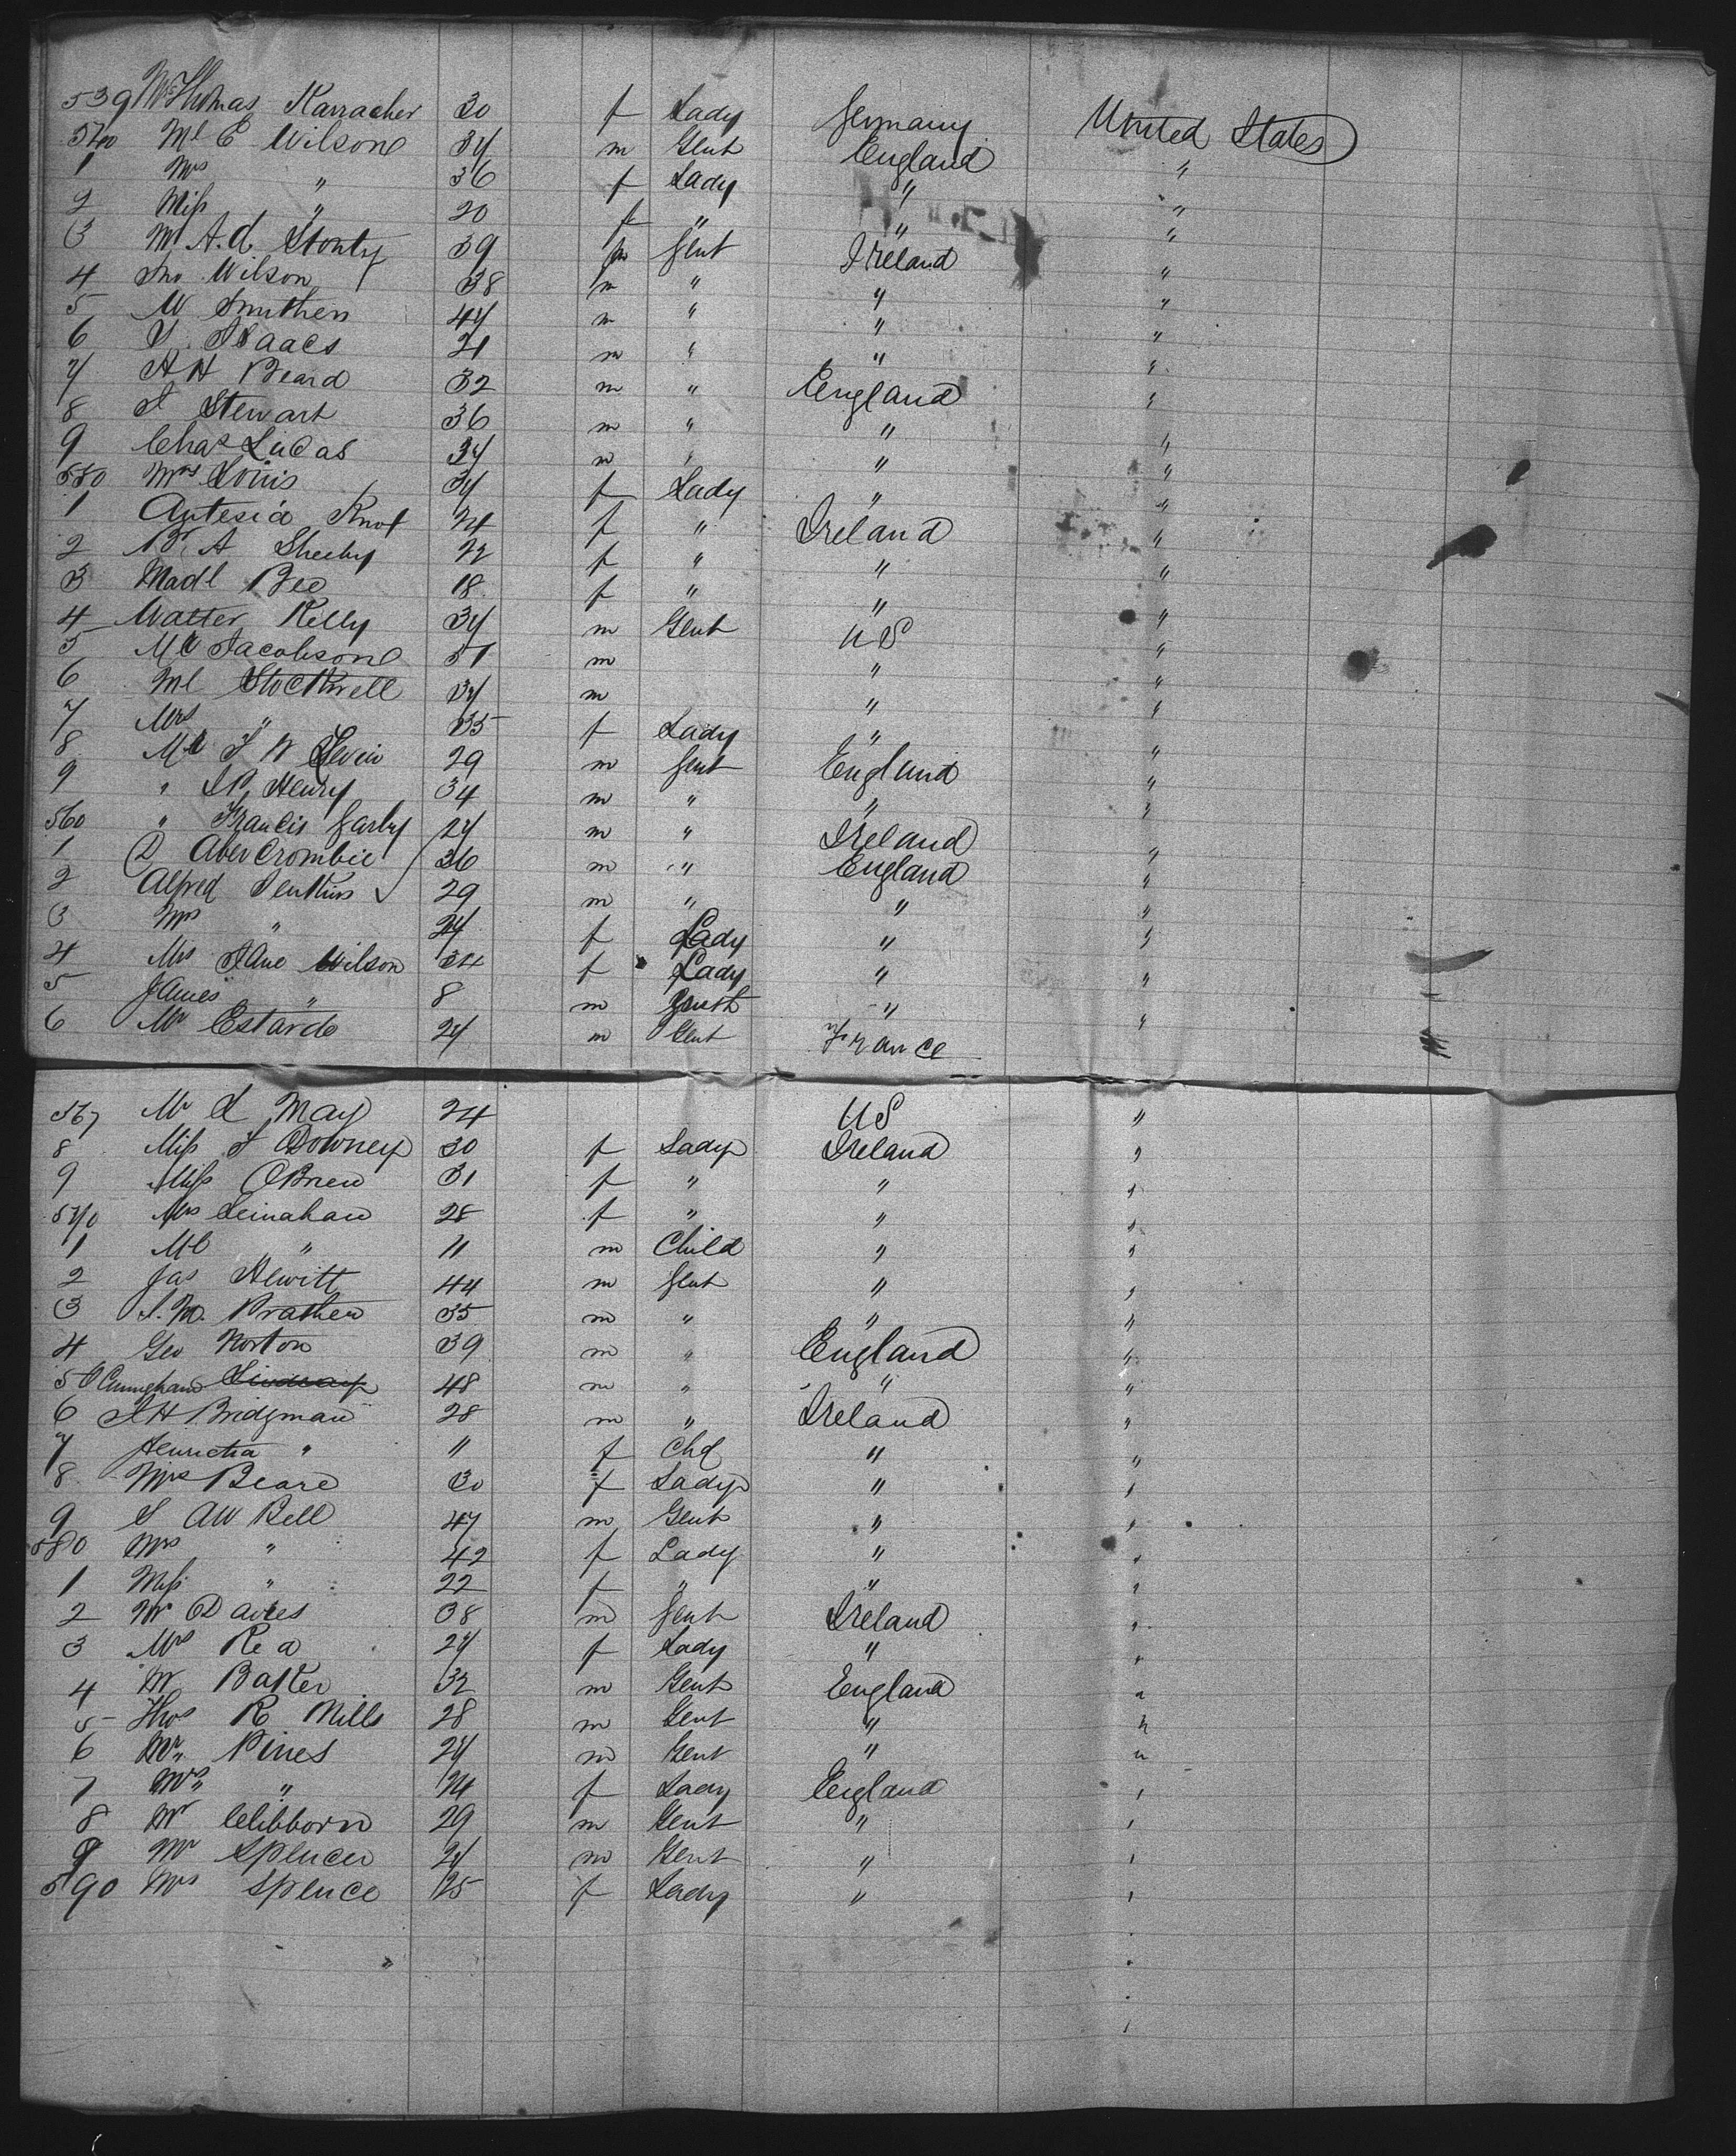 539 Mrs Thomas Karracher 30 f Lady Germany United States
540 Mr C Wilson 34 m Gent England "
1 Mrs " 36 f Lady " "
2 Miss " 20 f " " "
3 Mr A. d. 39 m Gent Ireland "
4 Jno Wilson 38 m " " "
5 W Smithers 44 m " " "
6 I. Isaacs 21 m " " "
7 A H Beard 32 m " England "
8 J Stewart 36 m " " "
9 Chas Lucas 34 m " " "
550 Mrs Louis 34 f Lady " "
1 Knox 24 f " Ireland "
2 A Sheehy 22 f " " "
3 Madl Bee 18 f " " "
4 Walter Kelly 34 m Gent US "
5 Mr Jacobson 31 m " "
6 Mr Stockwell 34 m " "
7 Mrs " 35 f Lady " "
8 Mr J W 29 m Gent England "
9 " Henry 34 m " " "
560 " Francis Garby 24 m " Ireland "
1 D Abercrombie 36 m " England "
2 Alfred Jenkins 29 m " " "
3 Mrs " 24 f Lady " "
4 Mrs Jane Wilson 34 f Lady " "
5 James " 8 m Youth " "
6 Mr Estardo 24 m Gent France "
567 Mr L May 24 US "
8 Miss J Downey 30 f Lady Ireland "
9 Miss OBrien 31 f " " "
570 Mrs Leinahan 28 f " " "
1 Mr " 11 m Child " "
2 Jas Hewitt 44 m Gent " "
3 J. M. Prather 35 m " " "
4 Geo Norton 39 m " England "
5 Cunningham Lindsay 48 m " " "
6 J H Bridgman 28 m " Ireland "
7 Henrietta " " f Chd " "
8 Mrs Beare 30 f Lady " "
9 J AW Bell 47 m Gent " "
580 Mrs " 42 f Lady " "
1 Miss " 22 f " " "
2 Mr Davies 38 m Gent Ireland "
3 Mrs Rea 27 f Lady " "
4 Mr Baker 32 m Gent England "
5 Thos R Mills 28 m Gent " "
6 Mr Pines 24 m Gent " "
7 Mrs " 24 f Lady England "
8 Mr Clibborn 29 m Gent " "
9 Mr Spencer 24 m Gent " "
590 Mrs Spence 25 f Lady " "